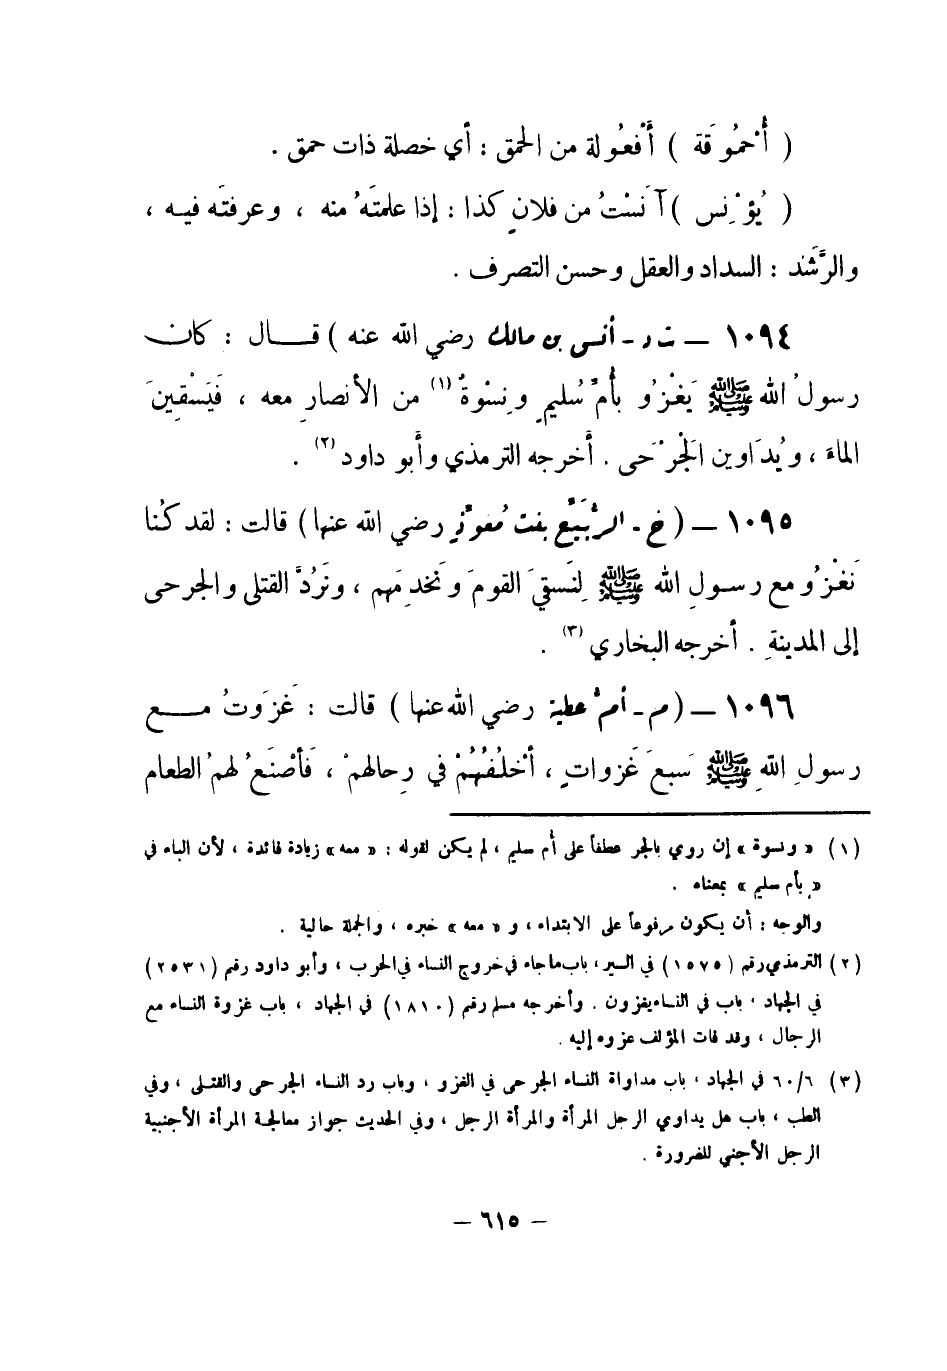 ( أُحْمُوقَة ) أُفْعُولة من الحمق : أي خصلة ذات حمق .
( يُؤْنِس ) آنَسْتُ من فلانٍ كذا : إذا علمتَهُ منه ، وعرفتَه فيه ،
والرَّشَد : السداد والعقل وحسن التصرف .
١٠٩٤ — ت د - أنس بن مالك رضي الله عنه ) قال : كان
رسولُ الله ﷺ يَغْزُو بأُمِّ سُليمٍ ونِسْوةٌ (١) من الأنصارِ معه ، فَيَسْقِينَ
الماءَ ، ويُدَاوين الجَرْحَى . أخرجه الترمذي وأبو داود (٢) .
١٠٩٥ — ( خ - الرُّبَيِّع بنت مُعَوِّذ رضي الله عنها ) قالت : لقد كُنا
نَغْزُو مع رسولِ الله ﷺ لِنَسقيَ القومَ ونَخدِمَهم ، ونَرُدَّ القتلى والجرحى
إلى المدينةِ . أخرجه البخاري (٣) .
١٠٩٦ — ( م - أم عطية رضي الله عنها ) قالت : غَزَوتُ مع
رسولِ اللهِ ﷺ سَبعَ غَزواتٍ ، أخْلُفُهُمْ في رِحالهمْ ، فَأصْنَعُ لهمُ الطعام
(١) « ونسوة » إن روي بالجر عطفاً على أم سليم ، لم يكن لقوله : « معه » زيادة فائدة ، لأن الباء في
« بأم سليم » بمعناه .
والوجه : أن يكون مرفوعاً على الابتداء ، و « معه » خبره ، والجملة حالية .
(٢) الترمذي رقم (١٥٧٥) في السير ، باب ما جاء في خروج النساء في الحرب ، وأبو داود رقم (٢٥٣١)
في الجهاد ، باب في النساء يغزون . وأخرجه مسلم رقم (١٨١٠) في الجهاد ، باب غزوة النساء مع
الرجال ، وقد فات المؤلف عزوه إليه .
(٣) ٦٠/٦ في الجهاد ، باب مداواة النساء الجرحى في الغزو ، وباب رد النساء الجرحى والقتلى ، وفي
الطب ، باب هل يداوي الرجل المرأة والمرأة الرجل ، وفي الحديث جواز معالجة المرأة الأجنبية
الرجل الأجنبي للضرورة .
— ٦١٥ —